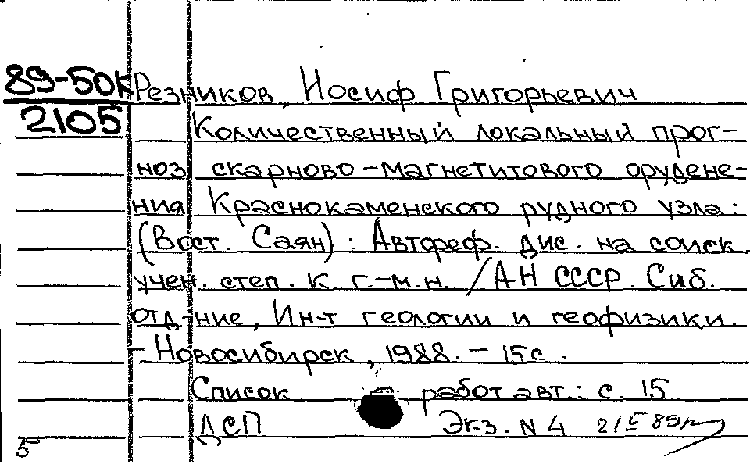 89-50К Резников, Иосиф Григорьевич
2105 Количественный локальный прог-
ноз скарново-магнетитового орудене-
ния Краснокаменского рудного узла:
(Вост. Саян): Автореф. дис. на соиск.
учен. степ. к г.-м.н. /АН СССР. Сиб.
отд-ние, Ин-т геологии и геофизики.
- Новосибирск, 1988. - 15 с.
Список работ авт.: с. 15
ДСП Экз. N 4
5